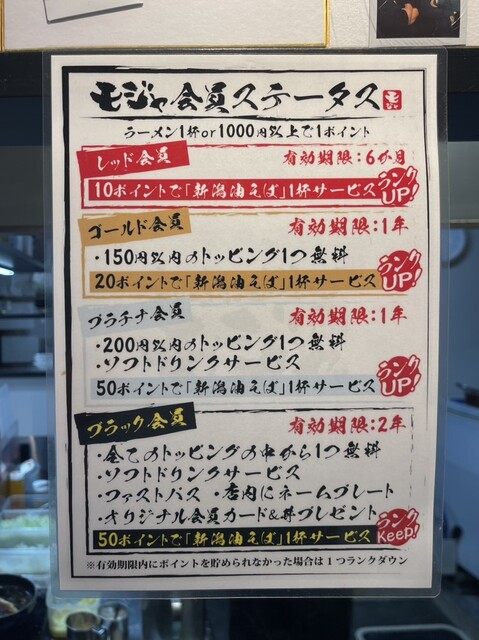 モジャ会員ステータス
ラーメン1杯or1000円以上で1ポイント
レッド会員 有効期限:6か月
10ポイントで「新潟油そば」1杯サービス ランクUP!
ゴールド会員 有効期限:1年
・150円以内のトッピング1つ無料
20ポイントで「新潟油そば」1杯サービス ランクUP!
プラチナ会員 有効期限:1年
・200円以内のトッピング1つ無料
・ソフトドリンクサービス
50ポイントで「新潟油そば」1杯サービス ランクUP!
ブラック会員 有効期限:2年
・全てのトッピングの中から1つ無料
・ソフトドリンクサービス
・ファストパス ・店内にネームプレート
・オリジナル会員カード&丼プレゼント
50ポイントで「新潟油そば」1杯サービス ランクKeep!
※有効期限内にポイントを貯められなかった場合は1つランクダウン